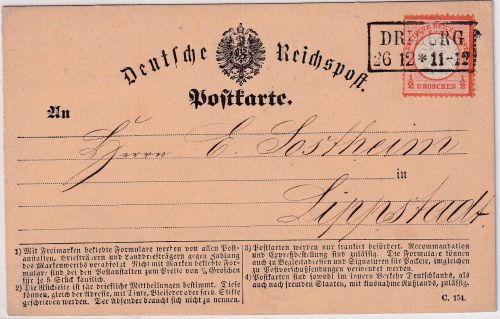 Deutsche Reichspost.
DRIBURG
26 12 * 11-12
1/2 GROSCHEN 1/2
Postkarte.
An
Herrn E. Sostheim
in
Lippstadt
1) Mit Freimarken beklebte Formulare werden von allen Post-
anstalten, Briefträgern und Landbriefträgern gegen Zahlung
des Markenwerths verabfolgt. Nicht mit Marken beklebte For-
mulare sind bei den Postanstalten zum Preise von ¼ Groschen
für je 5 Stück käuflich.
2) Die Rückseite ist für briefliche Mittheilungen bestimmt. Diese
können, gleich der Adresse, mit Tinte, Bleifeder oder farb. Stifte
geschrieben werden. Der Absender braucht sich nicht zu nennen.
3) Postkarten werden nur frankirt befördert. Recommandation
und Expreßbestellung sind zulässig. Die Formulare können
auch zu Begleitadressen und Signaturen für Packete, imgleichen
zu Postvorschußsendungen verwendet werden.
4) Postkarten sind sowohl im innern Verkehr Deutschlands, als
auch nach fremden Staaten, mit Ausnahme Rußlands, zulässig.
C. 154.